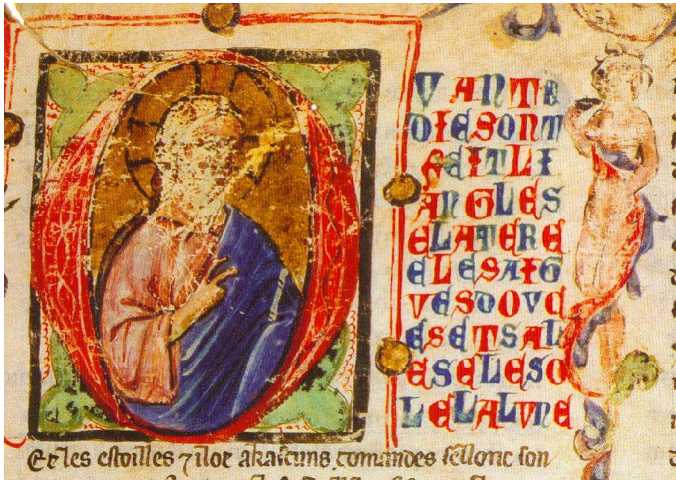 VANTE
DIESONT
FEITLI
ANGLES
ELATERE
ELESAIG
VESDOVC
ESETSAL
ESELESO
LELALVNE
Et les estoilles ⁊ ilot akascuns. comandes sellonc son